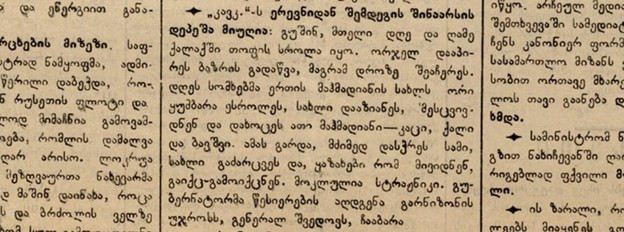 და ენერგიით განა-
რცხების მიზეზი. საფ-
სტრად ნამყოფმა, ადმი-
წერილი დაბეჭდა, რო-
ნ რუსეთის ფლოტი და
ლოდ მიმაჩნია გამოვამ-
ება, რომლის დამალვა
ღარ არისო.
მეზღვაურთა ნახევარმა
დ მაშინ დაინახა, როცა
ს და ბრძოლის ველზე
„კავკ.“-ს ერევნიდან შემდეგის შინაარსის
დეპეშა მიუღია: გუშინ, მთელი დღე და ღამე
ქალაქში თოფის სროლა იყო. ორჯელ დააპი-
რეს ბაზრის გადაწვა, მაგრამ დროზე შეაჩერეს.
დღეს სომხებმა ერთის მაჰმადიანის სახლს ორი
ყუმბარა ესროლეს, სახლი დააზიანეს, შესცვივ-
დნენ და დახოცეს ათი მაჰმადიანი—კაცი, ქალი
და ბავშვი. ამას გარდა, მძიმედ დასჭრეს სამი,
სახლი გაძარცვეს და, ყაზახები რომ მივიდნენ,
გაიქც-გამოიქცნენ. მოკლულია სტრაჟნიკი. გუ-
ბერნატორმა წესიერების აღდგენა გარნიზონის
უფროსს, გენერალ შვედოვს, ჩააბარა
იწყო. არჩეულ მედია
შემთხვევაში სამედიატ
ჩენს კანონიერ ფორმ
სასამართლო მიზანს
სობით ორთავე მხარე
ლოს თავი გაანება დ
ხმდა.
სამინისტრომ ნ
გზით ნახიჩევანში ღა
რიგებლად ფქვილი მ
ლი.
ის ზარალი, რო